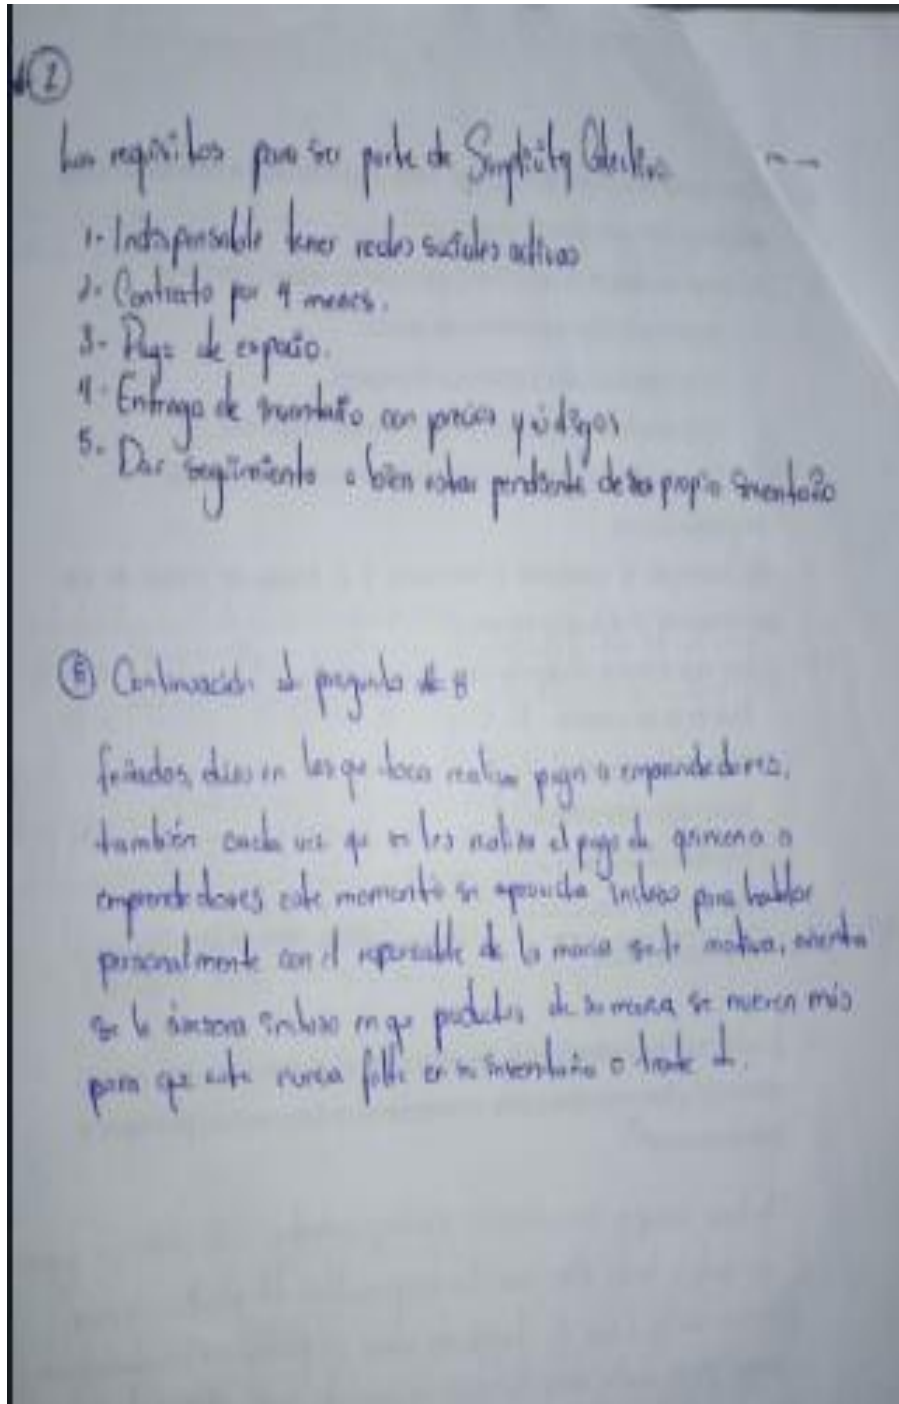 ②
Los requisitos para ser parte de Simplicity Colectivo.
1.- Indispensable tener redes sociales activas
2.- Contrato por 4 meses.
3.- Pago de espacio.
4.- Entrega de inventario con precios y códigos
5.- Dar seguimiento o bien estar pendiente de su propio inventario
⑧ Continuación de pregunta # 8
feriados, días en los que toca realizar pagos a emprendedores,
también cada vez que se les realiza el pago de quincena a
emprendedores este momento se aprovecha incluso para hablar
personalmente con el responsable de la marca se le motiva, orienta
se le asesora incluso en que productos de su marca se mueven más
para que este nunca falte en su inventario o trate de.